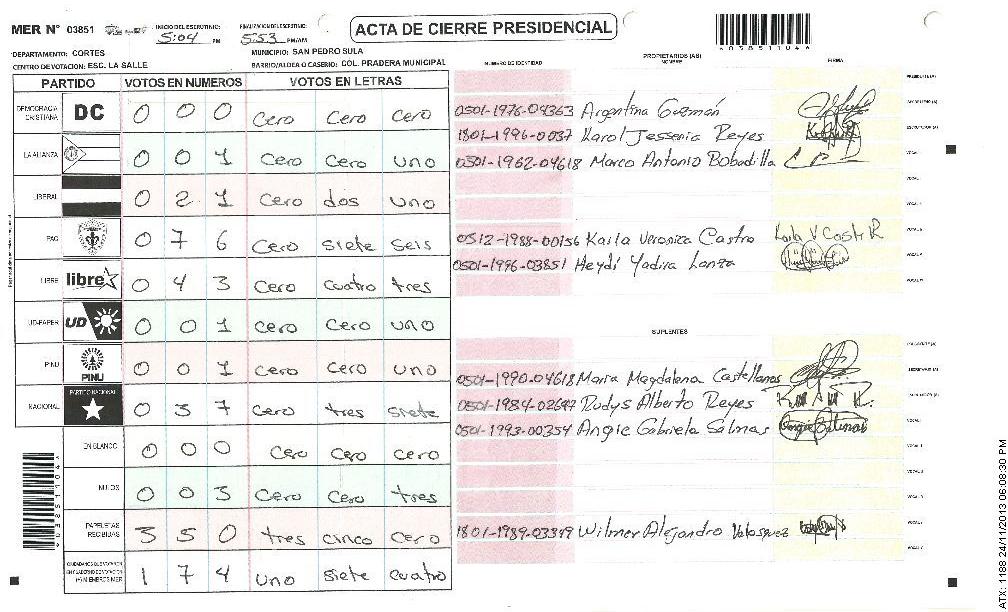 MER N° 03851
INICIO DEL ESCRUTINIO:
5:04 PM
FINALIZACION DEL ESCRUTINIO:
5:53 PM/AM
ACTA DE CIERRE PRESIDENCIAL
DEPARTAMENTO: CORTES
MUNICIPIO: SAN PEDRO SULA
CENTRO DE VOTACION: ESC. LA SALLE
BARRIO/ALDEA O CASERIO: COL. PRADERA MUNICIPAL
PARTIDO VOTOS EN NUMEROS VOTOS EN LETRAS
DEMOCRACIA CRISTIANA DC 0 0 0 Cero Cero Cero
LA ALIANZA 0 0 1 Cero Cero uno
LIBERAL 0 2 1 Cero dos uno
PAC 0 7 6 Cero siete seis
LIBRE libre 0 4 3 Cero Cuatro tres
UD-PAPER UD 0 0 1 Cero Cero uno
PINU PINU 0 0 1 Cero Cero uno
NACIONAL PARTIDO NACIONAL 0 3 7 Cero tres siete
EN BLANCO 0 0 0 Cero Cero Cero
NULOS 0 0 3 Cero Cero tres
PAPELETAS RECIBIDAS 3 5 0 tres cinco Cero
1 7 4 uno siete cuatro
NUMERO DE IDENTIDAD
PROPIETARIOS (AS)
NOMBRE
FIRMA
0501-1976-04363 Argentina Guzmán
1801-1996-0037 Karol Jessenia Reyes
0501-1962-04618 Marco Antonio Bobadilla
0512-1988-00156 Karla Veronica Castro Karla V Castr R
0501-1996-03851 Heydi Yadira Lanza
SUPLENTES
0501-1990-04618 Maria Magdalena Castellanos
0501-1984-02697 Rudys Alberto Reyes
0501-1993-00354 Angie Gabriela Salinas
1801-1989-03399 Wilmer Alejandro Velasquez
ATX: 1188 24/11/2013 06:08:30 PM